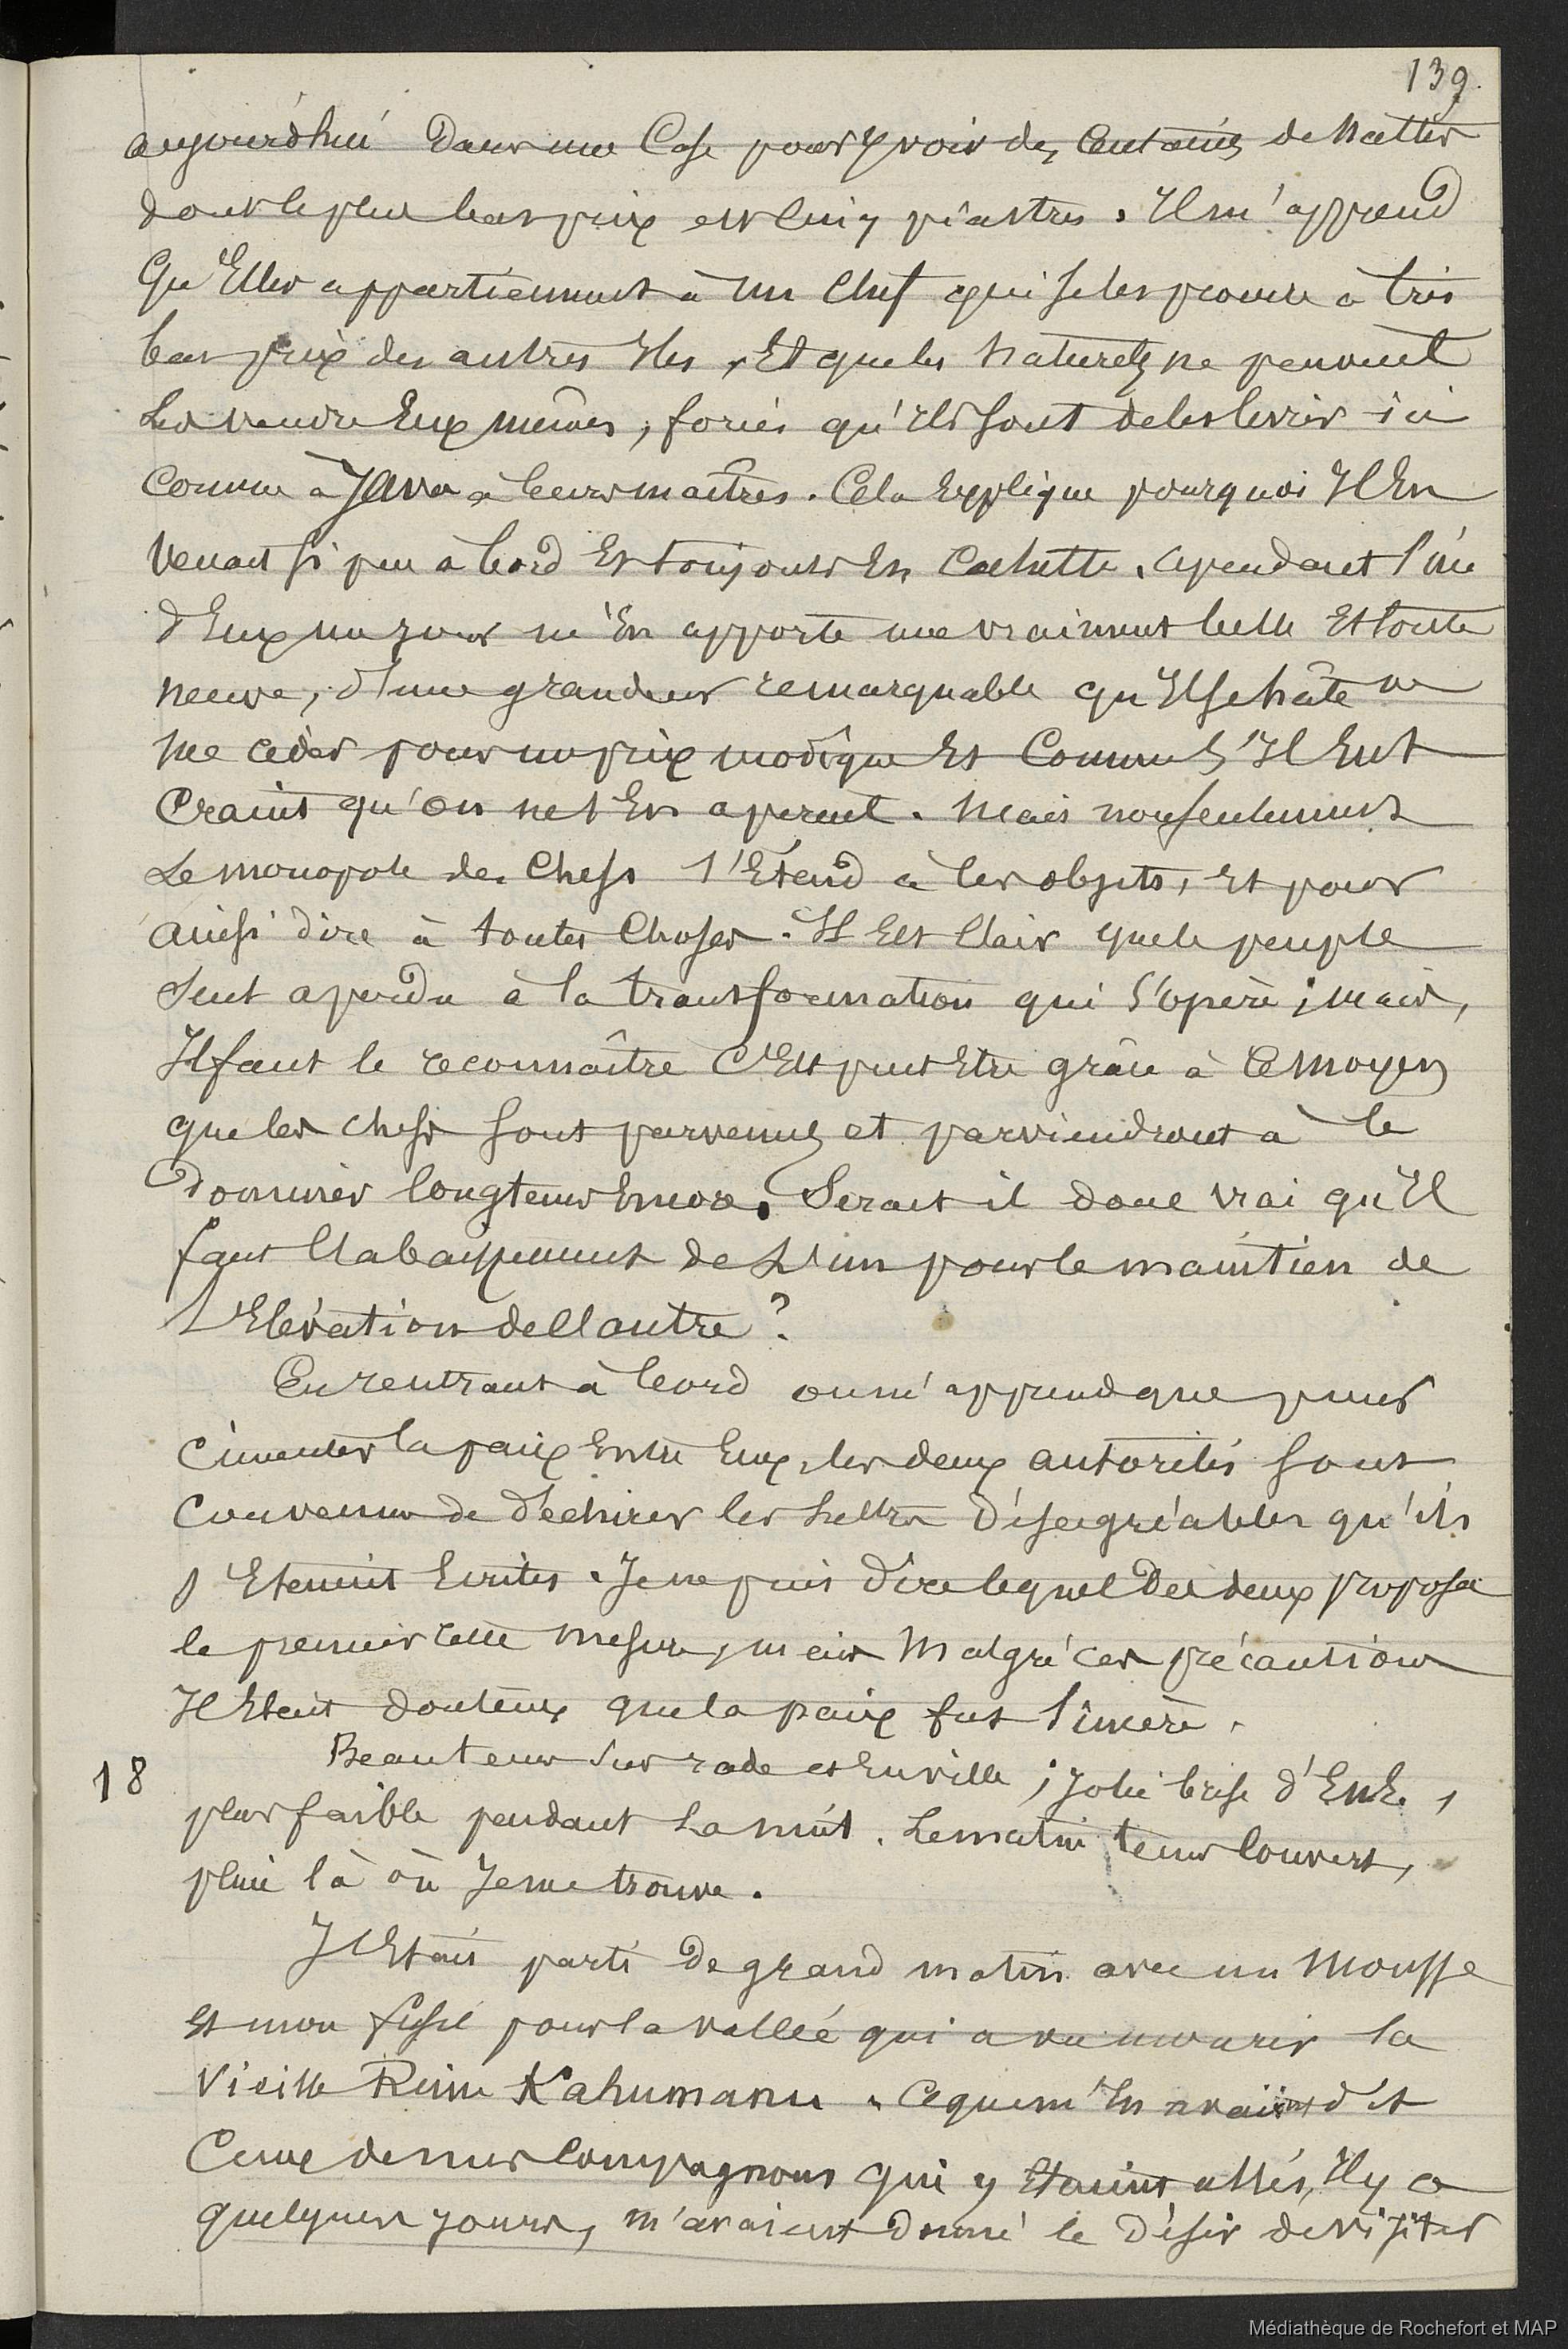 139.
aujourd'hui Dans une Case pour y voir des Centaines de Nattes
dont le plus bas prix est Cinq piastres. Il m'apprend
Qu'Elles appartiennent à Un Chef qui se les procure à très
bas prix des autres Iles, Et que les Naturels ne peuvent
Les vendre Eux mêmes, forcés qu'Ils sont de les livrer ici
Comme à Java à leurs maîtres. Cela Explique pourquoi Il En
Venait si peu à bord Et toujours En Cachette. Cependant l'un
d'Eux un jour m'En apporte une vraiment belle Et toute
neuve, d'une grandeur remarquable qu'Il se hâte de
me céder pour un prix modique Et Comme S'Il Eut
Craint qu'on ne s'En aperçut. Mais non seulement
Le monopole des Chefs s'Etend à ces objets, Et pour
ainsi dire à toutes Choses. Il Est Clair que le peuple
Seul a perdu à la transformation qui S'opère ; mais,
Il faut le reconnaître C'Est peut Etre grâce à Ce moyen
que les chefs sont parvenus et parviendront à le
Dominer longtems Encore. Serait il donc vrai qu'Il
faut l'abaissement de L'un pour le maintien de
l'Elévation de l'autre ?
En rentrant à bord on m'apprend que pour
Cimenter la paix Entre Eux, les deux autorités sont
Convenus de déchirer les Lettres Désagréables qu'ils
s'Etaient Ecrites. Je ne puis Dire lequel Des deux proposa
le premier cette mesure, mais Malgré ces précautions
Il Etait douteux que la paix fut Sincère.
18 Beau tems Sur rade et En ville ; Jolie brise d'E.N.E.,
plus faible pendant La nuit. Le matin tems Couvert,
pluie là où Je me trouve.
J'Etais parti De grand matin avec un Mousse
Et mon fusil pour la vallée qui a vu mourir la
Vieille Reine Kahumanu. Ce que m'En avaient dit
Ceux de mes Compagnons qui y Etaient allés, Il y a
quelques jours, m'avaient Donné le Désir de visiter
Médiathèque de Rochefort et MAP